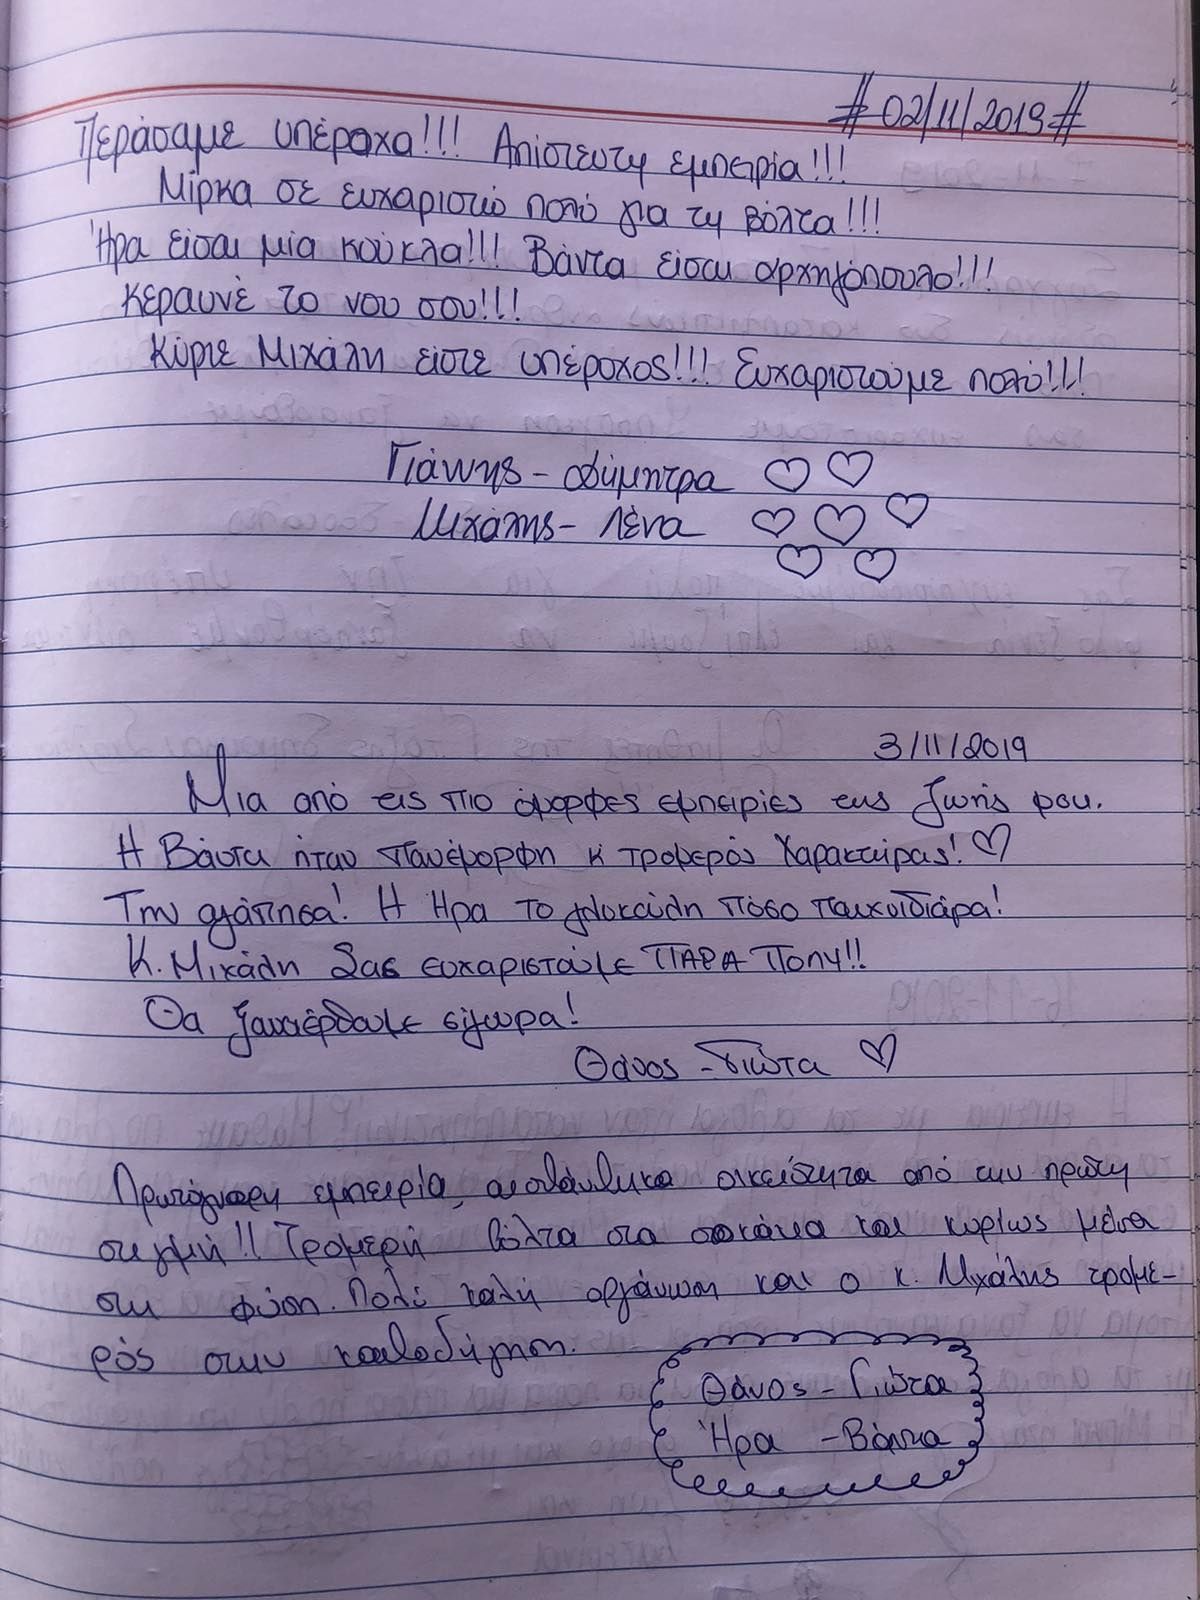 #02/11/2019#
Περάσαμε υπέροχα!!! Απίστευτη εμπειρία!!!
Μίρκα σε ευχαριστώ πολύ για τη βόλτα!!!
Ήρα είσαι μία κούκλα!!! Βάντα είσαι αρχηγόπουλο!!!
Κεραυνέ το νου σου!!!
Κύριε Μιχάλη είστε υπέροχος!!! Ευχαριστούμε πολύ!!!
Γιάννης - Δήμητρα
Μιχάλης - Λένα
3/11/2019
Μια από τις πιο όμορφες εμπειρίες της ζωής μου.
Η Βάντα ήταν πανέμορφη κ' τρομερός χαρακτήρας!
Την αγάπησα! Η Ήρα το γλυκούλη πόσο παιχνιδιάρα!
Κ. Μιχάλη Σας ευχαριστούμε ΠΑΡΑ ΠΟΛΥ!!
Θα ξαναέρθουμε σίγουρα!
Θάνος - Γιώτα
Πρωτόγνωρη εμπειρία, αισθάνθηκα οικειότητα από την πρώτη
στιγμή!! Τρομερή βόλτα στα σοκάκια και κυρίως μέσα
στη φύση. Πολύ καλή οργάνωση και ο κ. Μιχάλης τρομε-
ρός στην καθοδήγηση.
Θάνος - Γιώτα
Ήρα - Βάντα